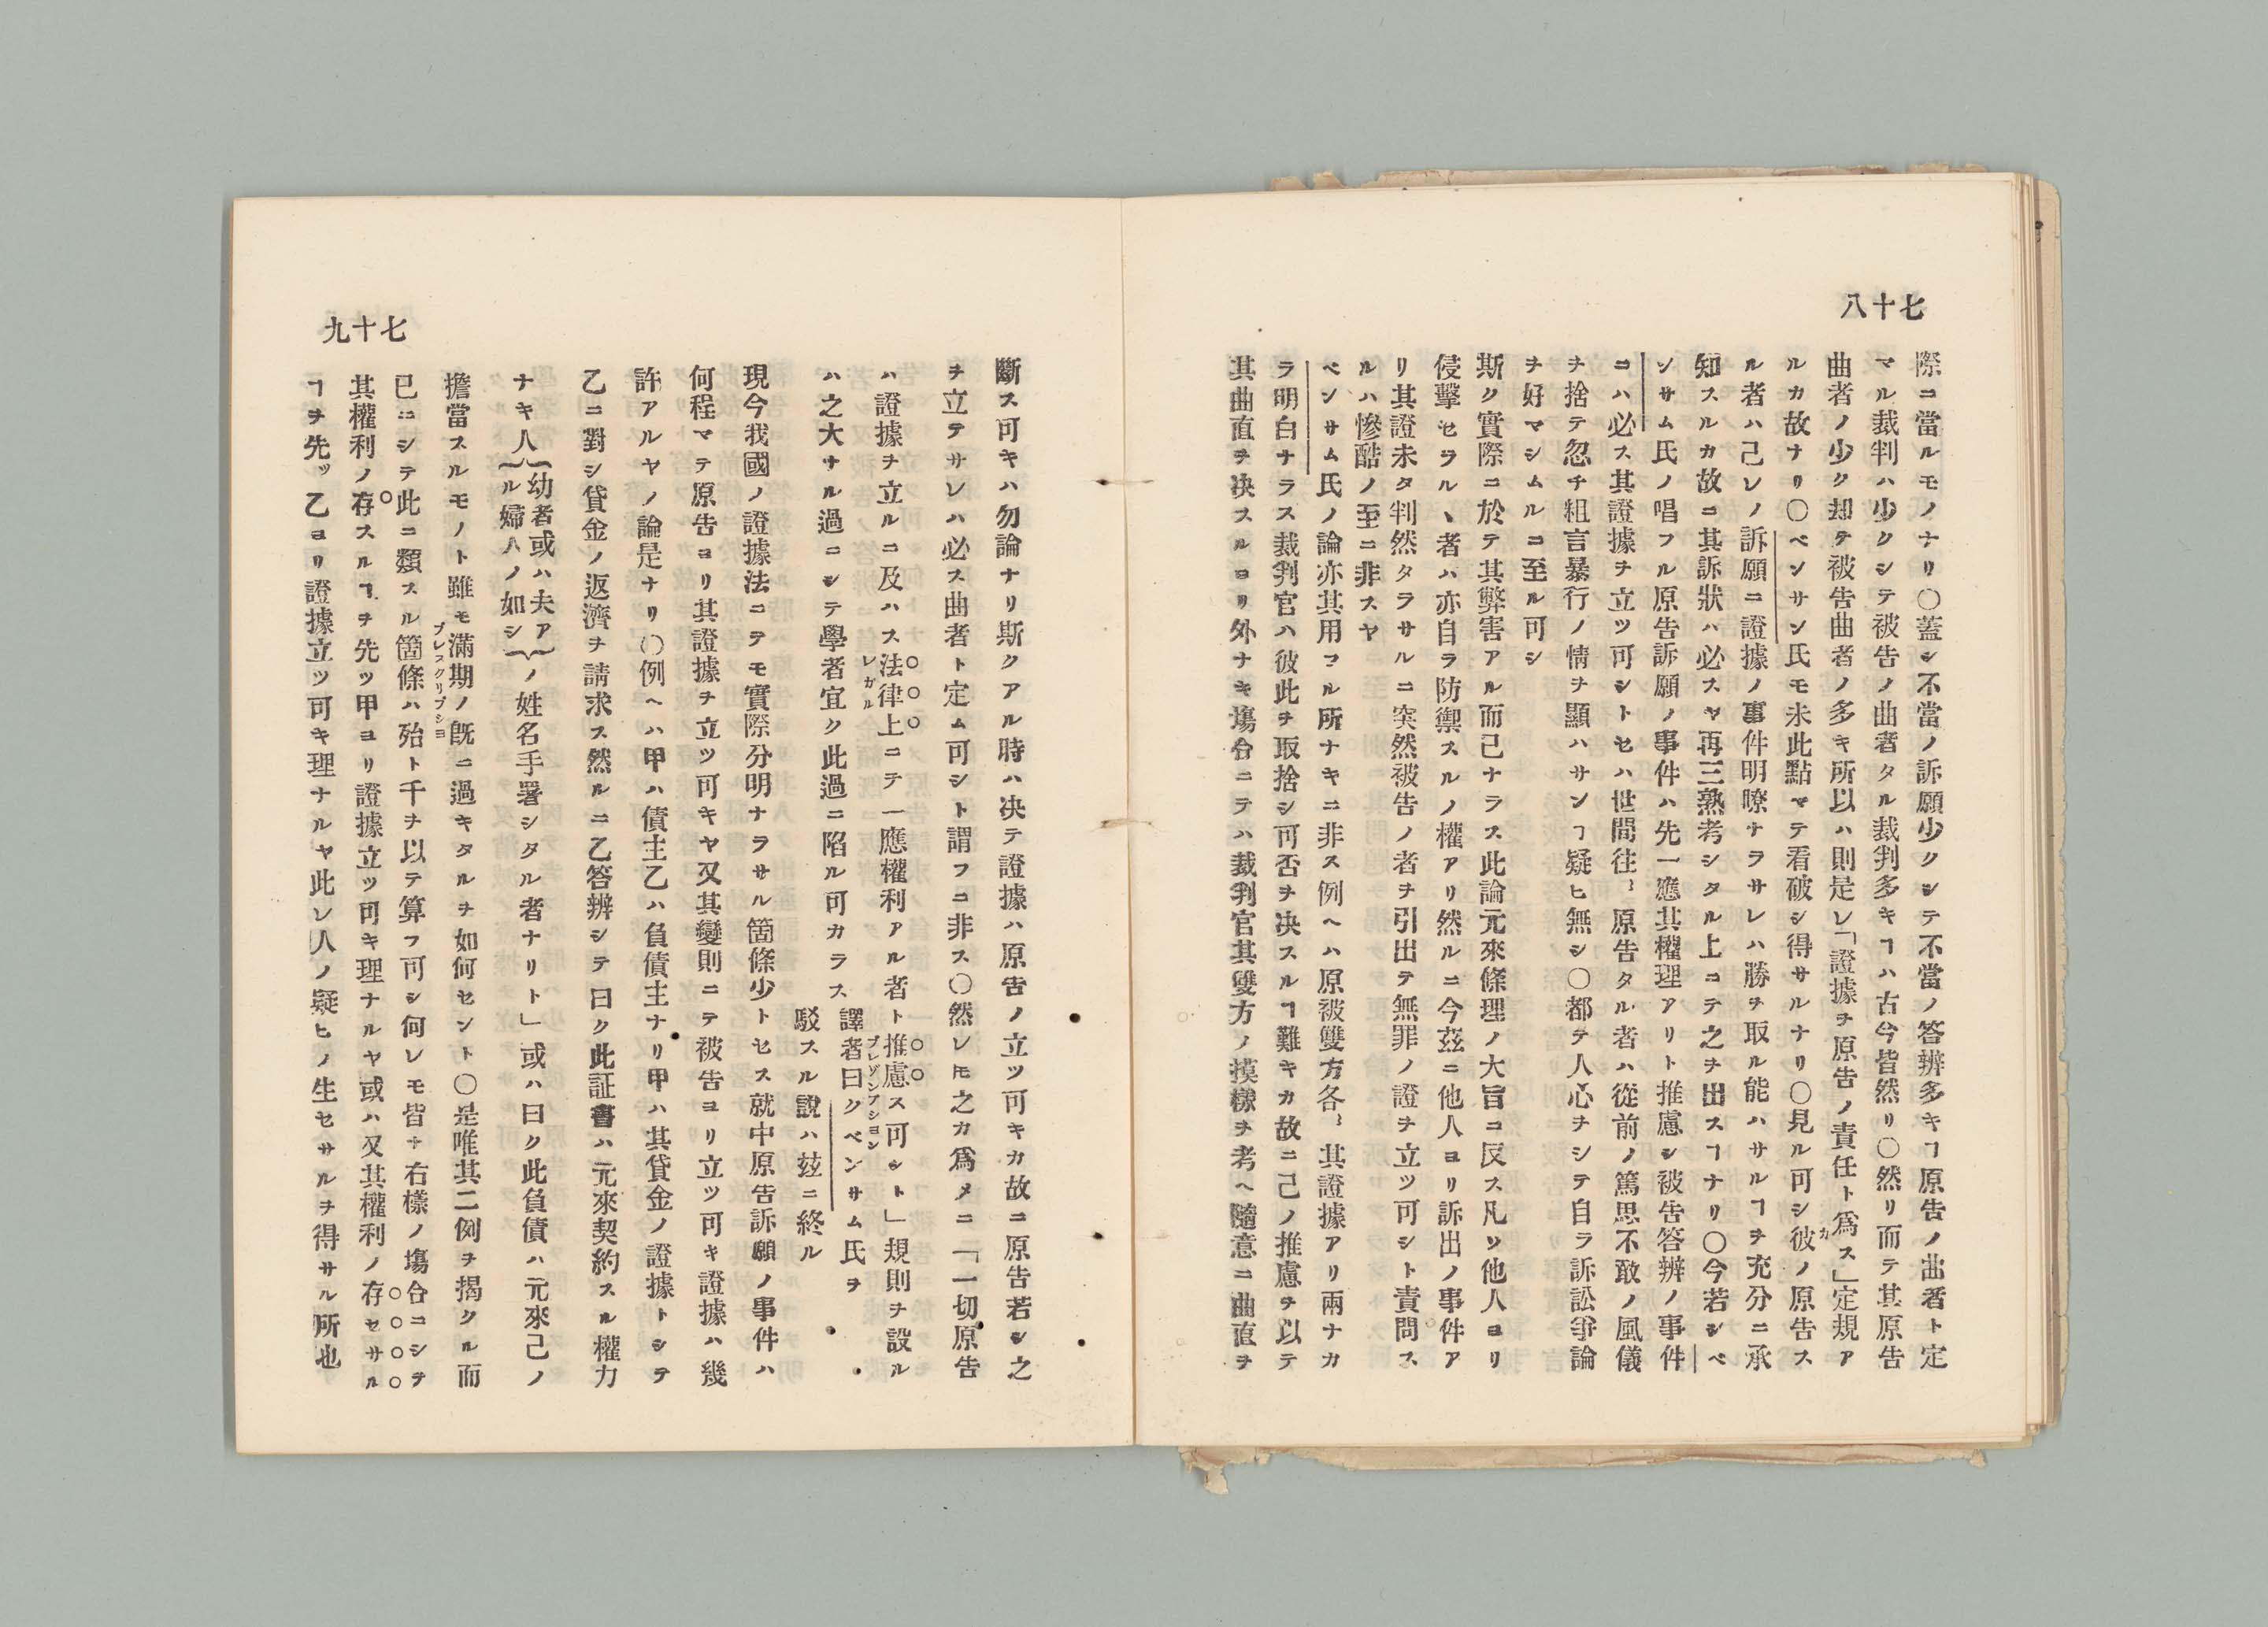 七十八
際ニ當ルモノナリ○蓋シ不當ノ訴願少クシテ不當ノ答辨多キヿ原告ノ曲者ト定
マル裁判ハ少クシテ被告ノ曲者タル裁判多キヿハ古今皆然リ○然リ而テ其原告
曲者ノ少ク却テ被告曲者ノ多キ所以ハ則是レ「證據ヲ原告ノ責任ト爲ス」定規ア
ルカ故ナリ○ベンサン氏モ未此點マテ看破シ得サルナリ○見ル可シ彼カノ原告ス
ル者ハ己レノ訴願ニ證據ノ事件明瞭ナラサレハ勝ヲ取ル能ハサルヿヲ充分ニ承
知スルカ故ニ其訴狀ハ必スヤ再三熟考シタル上ニテ之ヲ出スヿナリ○今若シベ
ンサム氏ノ唱フル原告訴願ノ事件ハ先一應其權理アリト推慮シ被告答辨ノ事件
ニハ必ス其證據ヲ立ツ可シトセハ世間往〻原告タル者ハ從前ノ篤思不敢ノ風儀
ヲ捨テ忽チ粗言暴行ノ情ヲ顯ハサンヿ疑ヒ無シ○都テ人心ヲシテ自ラ訴訟爭論
ヲ好マシムルニ至ル可シ
斯ク實際ニ於テ其弊害アル而己ナラス此論元來條理ノ大旨ニ反ス凡ソ他人ヨリ
侵擊セラルヽ者ハ亦自ラ防禦スルノ權アリ然ルニ今茲ニ他人ヨリ訴出ノ事件ア
リ其證未タ判然タラサルニ突然被告ノ者ヲ引出テ無罪ノ證ヲ立ツ可シト責問ス
ルハ慘酷ノ至ニ非スヤ
ベンサム氏ノ論亦其用マル所ナキニ非ス例ヘハ原被雙方各〻其證據アリ兩ナカ
ラ明白ナラス裁判官ハ彼此ヲ取捨シ可否ヲ决スルヿ難キカ故ニ己ノ推慮ヲ以テ
其曲直ヲ决スルヨリ外ナキ塲合ニテハ裁判官其雙方ノ摸樣ヲ考ヘ隨意ニ曲直ヲ
七十九
斷ス可キハ勿論ナリ斯クアル時ハ决テ證據ハ原告ノ立ツ可キカ故ニ原告若シ之
ヲ立テサレハ必ス曲者ト定ム可シト謂フニ非ス○然レ𪜈之カ爲メニ「一切原告
ハ證據ヲ立ルニ及ハス法律上レガルニテ一應權利アル者ト推慮プレゾンプションス可シト」規則ヲ設ル
ハ之大ナル過ニシテ學者宜ク此過ニ陷ル可カラス
譯者曰クベンサム氏ヲ
駁スル說ハ茲ニ終ル
現今我國ノ證據法ニテモ實際分明ナラサル箇條少トセス就中原告訴願ノ事件ハ
何程マテ原告ヨリ其證據ヲ立ツ可キヤ又其變則ニテ被告ヨリ立ツ可キ證據ハ幾
許アルヤノ論是ナリ○例ヘハ甲ハ債主乙ハ負債主ナリ甲ハ其貸金ノ證據トシテ
乙ニ對シ貸金ノ返濟ヲ請求ス然ルニ乙答辨シテ曰ク此証書ハ元來契約スル權力
ナキ人{幼者或ハ夫アル婦人ノ如シ}ノ姓名手署シタル者ナリト」或ハ曰ク此負債ハ元來己ノ
擔當スルモノト雖モ滿期プレスクリプショノ既ニ過キタルヲ如何セント○是唯其二例ヲ揭クル而
已ニシテ此ニ類スル箇條ハ殆ト千ヲ以テ算フ可シ何レモ皆ナ右樣ノ塲合ニシテ
其權利ノ存スルヿヲ先ツ甲ヨリ證據立ツ可キ理ナルヤ或ハ又其權利ノ存セサル
ヿヲ先ッ乙ヨリ證據立ツ可キ理ナルヤ此レ人ノ疑ヒノ生セサルヲ得サル所也